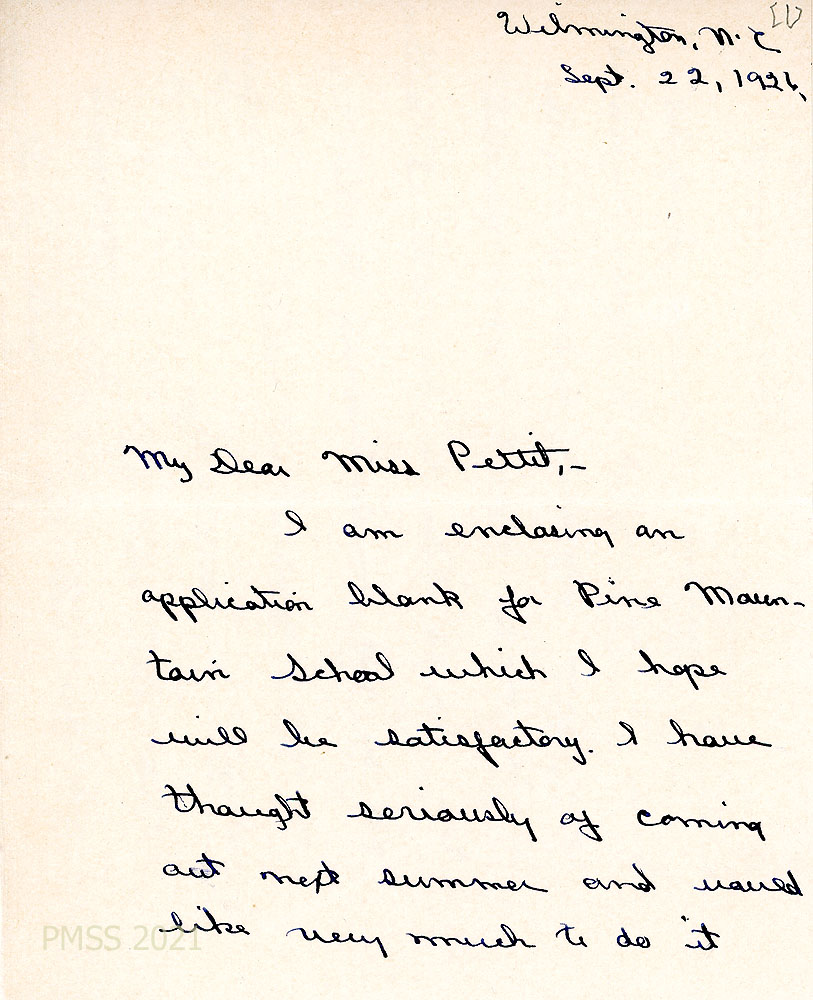 [1]
Wilmington, N.C
Sept. 22, 1926,
My Dear Miss Pettit,-
I am enclosing an
application blank for Pine Moun-
tain School which I hope
will be satisfactory. I have
thought seriously of coming
out next summer and would
like very much to do it
PMSS 2021